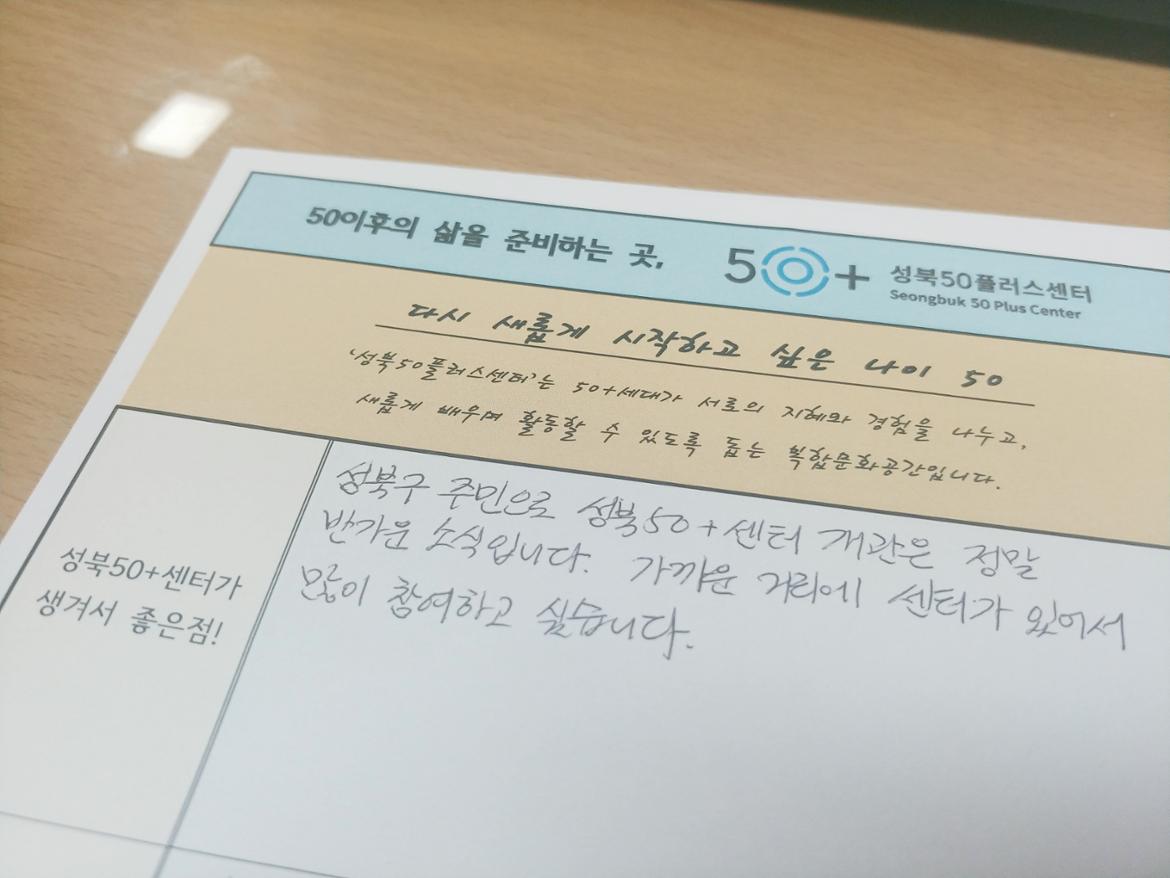 50이후의 삶을 준비하는 곳,
50+ 성북50플러스센터
Seongbuk 50 Plus Center
다시 새롭게 시작하고 싶은 나이 50
'성북50플러스센터'는 50+세대가 서로의 지혜와 경험을 나누고,
새롭게 배우며 활동할 수 있도록 돕는 복합문화공간입니다.
성북50+센터가
생겨서 좋은점!
성북구 주민으로 성북50+센터 개관은 정말
반가운 소식입니다. 가까운 거리에 센터가 있어서
많이 참여하고 싶습니다.